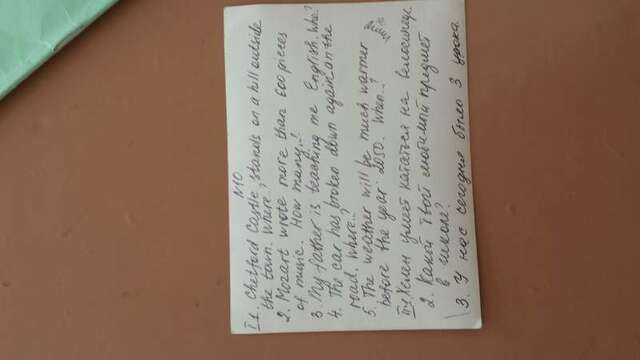 N10
I 1. Chetford Castle stands on a hill outside
the town. Where..?
2. Mozart wrote more than 600 pieces
of music. How many..?
3. My father is teaching me English. Who..?
4. The car has broken down again on the
road. Where..?
5. The weather will be much warmer
before the year 2050. When..?
II 1. Хелен умеет кататься на велосипеде.
2. Какой твой любимый предмет
в школе?
3. У нас сегодня было 3 урока.